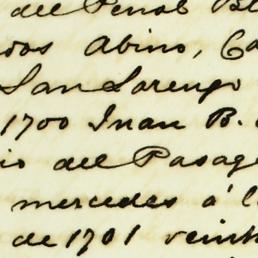 del Penol Bl
dos Abino, Ca
San Lorenzo
1700 Juan B.
io del Pasag
mercedes á l
de 1701 veint